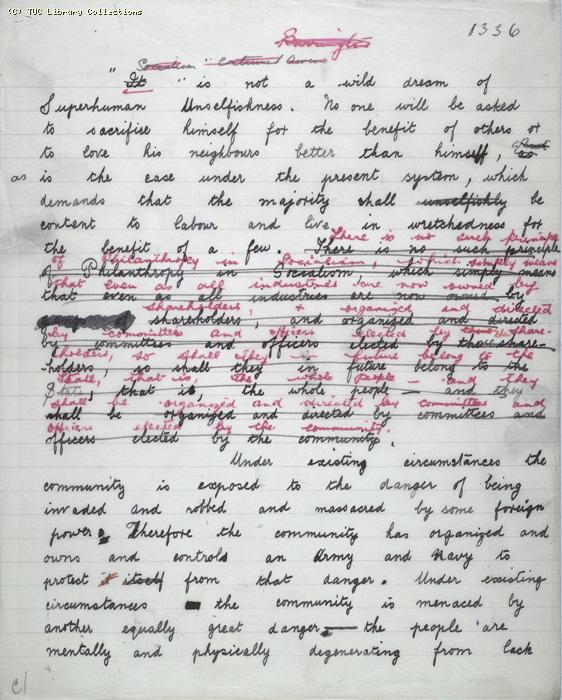 (C) TUC Library Collections
1336
Barrington
" Socialism " continued
" It " is not a wild dream of
Superhuman Unselfishness. No one will be asked
to sacrifice himself for the benefit of others or
to love his neighbours better than himself,
as is the case under the present system, which
demands that the majority shall unselfishly be
content to labour and live in wretchedness for
There is no such principle
the benefit of a few. There is no such principle
of Philanthropy in Socialism, which simply means
of Philanthropy in Socialism, which simply means
that even as all industries are now owned by
that even as all industries are now owned by
shareholders, & organized and directed
shareholders, and organized and directed
by committees and officers elected by share-
by committees and officers elected by those share-
holders, so shall they in future belong to the
holders, so shall they in future belong to the
State, that is, the whole people - and they
State, that is the whole people - and they
shall be organized and directed by committees and
shall be organized and directed by committees and
officers elected by the community.
officers elected by the community.
Under existing circumstances the
community is exposed to the danger of being
invaded and robbed and massacred by some foreign
power. Therefore the community has organized and
owns and controls an Army and Navy to
protect it itself from that danger. Under existing
circumstances the community is menaced by
another equally great danger — the people are
mentally and physically degenerating from lack